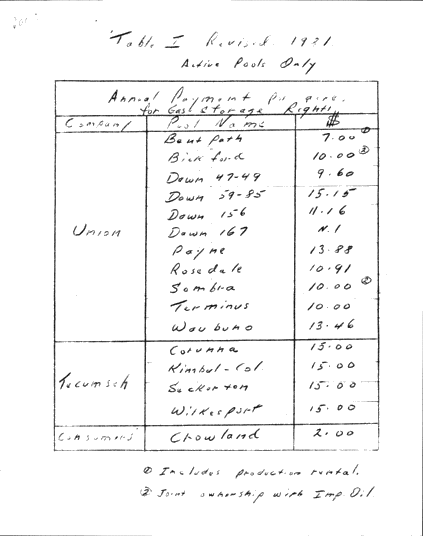 Table I Revised 1981
Active Pools Only
Annual Payment Per acre.
for Gas Storage Rights
Company Pool Name $
Bent path 7.00 ①
Bickford 10.00 ②
Dawn 47-49 9.60
Dawn 59-85 15.15
Dawn 156 11.16
Union Dawn 167 N.1
Payne 13.88
Rosedale 10.91
Sombra 10.00 ②
Terminus 10.00
Waubuno 13.46
Corunna 15.00
Kimbal-Col. 15.00
Tecumseh Seckerton 15.00
Wilkesport 15.00
Consumers Crowland 2.00
① Includes production rental.
② Joint ownership with Imp. Oil